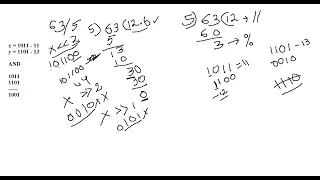 x = 1011 - 11
y = 1101 - 13
AND
1011
1101
1001
63/5
x << 2
101100
101100
x >> 2
0010
5)63(12.6
5
13
10
30
30
0
x >> 1
0101
5)63(12 → 11
60
3 → %
1011 = 11
1100
-12
1101 - 13
0010
1110